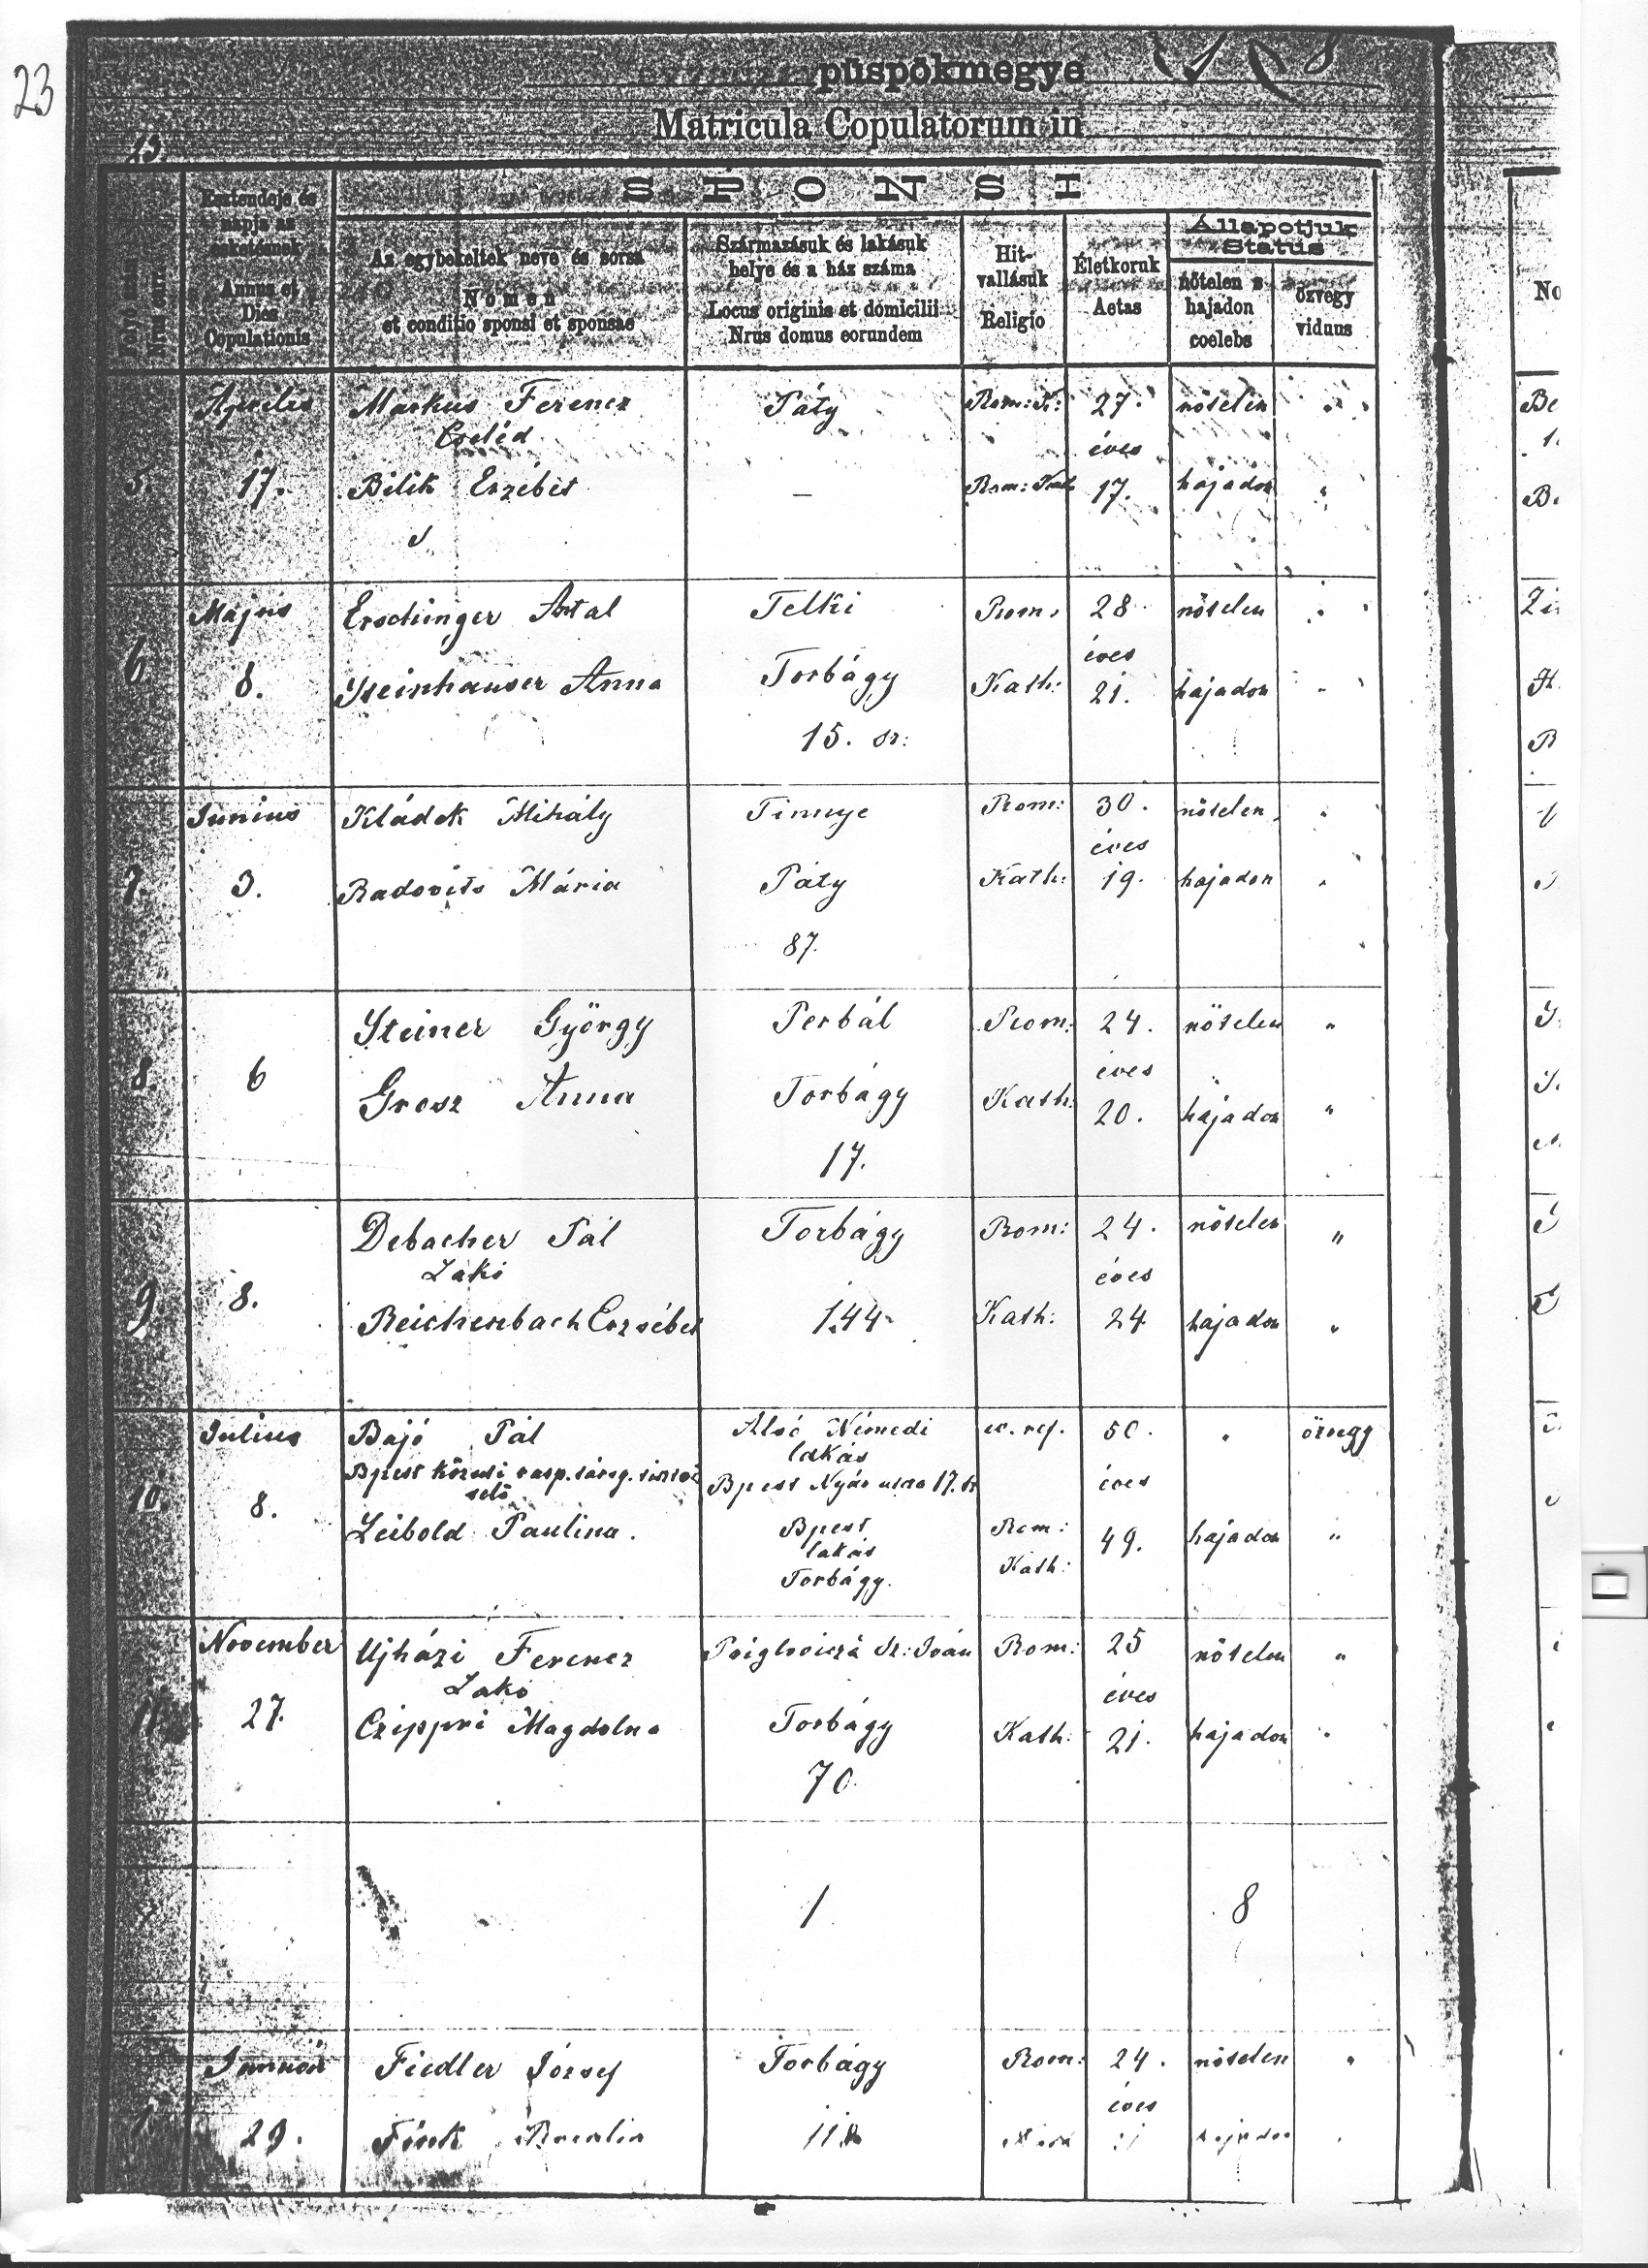 23
püspökmegye
Matricula Copulatorum in
SPONSI
Esztendeje és
napja az
esketésnek
Annus et
Dies
Copulationis
Az egybekeltek neve és sorsa
Nomen
et conditio sponsi et sponsae
Származásuk és lakásuk
helye és a ház száma
Locus originis et domicilii
Nrus domus eorundem
Hit-
vallásuk
Religio
Életkoruk
Aetas
Állapotjuk
Status
nőtelen s
hajadon
coelebs
özvegy
viduus
No
Április Markus Ferencz Páty Rom: K: 27. nőtelen "
Cseléd éves
5. 17. Bilik Erzébet – Rom: Kath 17. hajadon "
Május Erschinger Antal Telki Rom. 28 nőtelen "
éves
6 8. Steinhauser Anna Torbágy Kath: 21. hajadon "
15. sz:
Junius Kládek Mihály Tinnye Rom: 30. nőtelen "
éves
7. 3. Radovits Mária Páty Kath: 19. hajadon "
87.
Steiner György Perbál Rom: 24. nőtelen "
éves
8 6 Grosz Anna Torbágy Kath: 20. hajadon "
17.
Debacher Pál Torbágy Rom: 24. nőtelen "
Lakó éves
9. 8. Reichenbach Erzsébet 144 Kath: 24 hajadon "
Julius Bajó Pál Alsó Némedi ev. ref. 50. " özvegy
lakás
Bpest Nyár utca 17. sz éves
10. 8. Leibold Paulina. Bpest Rom: 49. hajadon "
lakás Kath:
Torbágy.
November Ujházi Ferencz Rom: 25 nőtelen "
Lakó éves
11 27. Czippri Magdolna Torbágy Kath: 21. hajadon "
70.
1 8
Január Fiedler József Torbágy Rom: 24. nőtelen "
éves
1. 29. Fink 118 hajadon